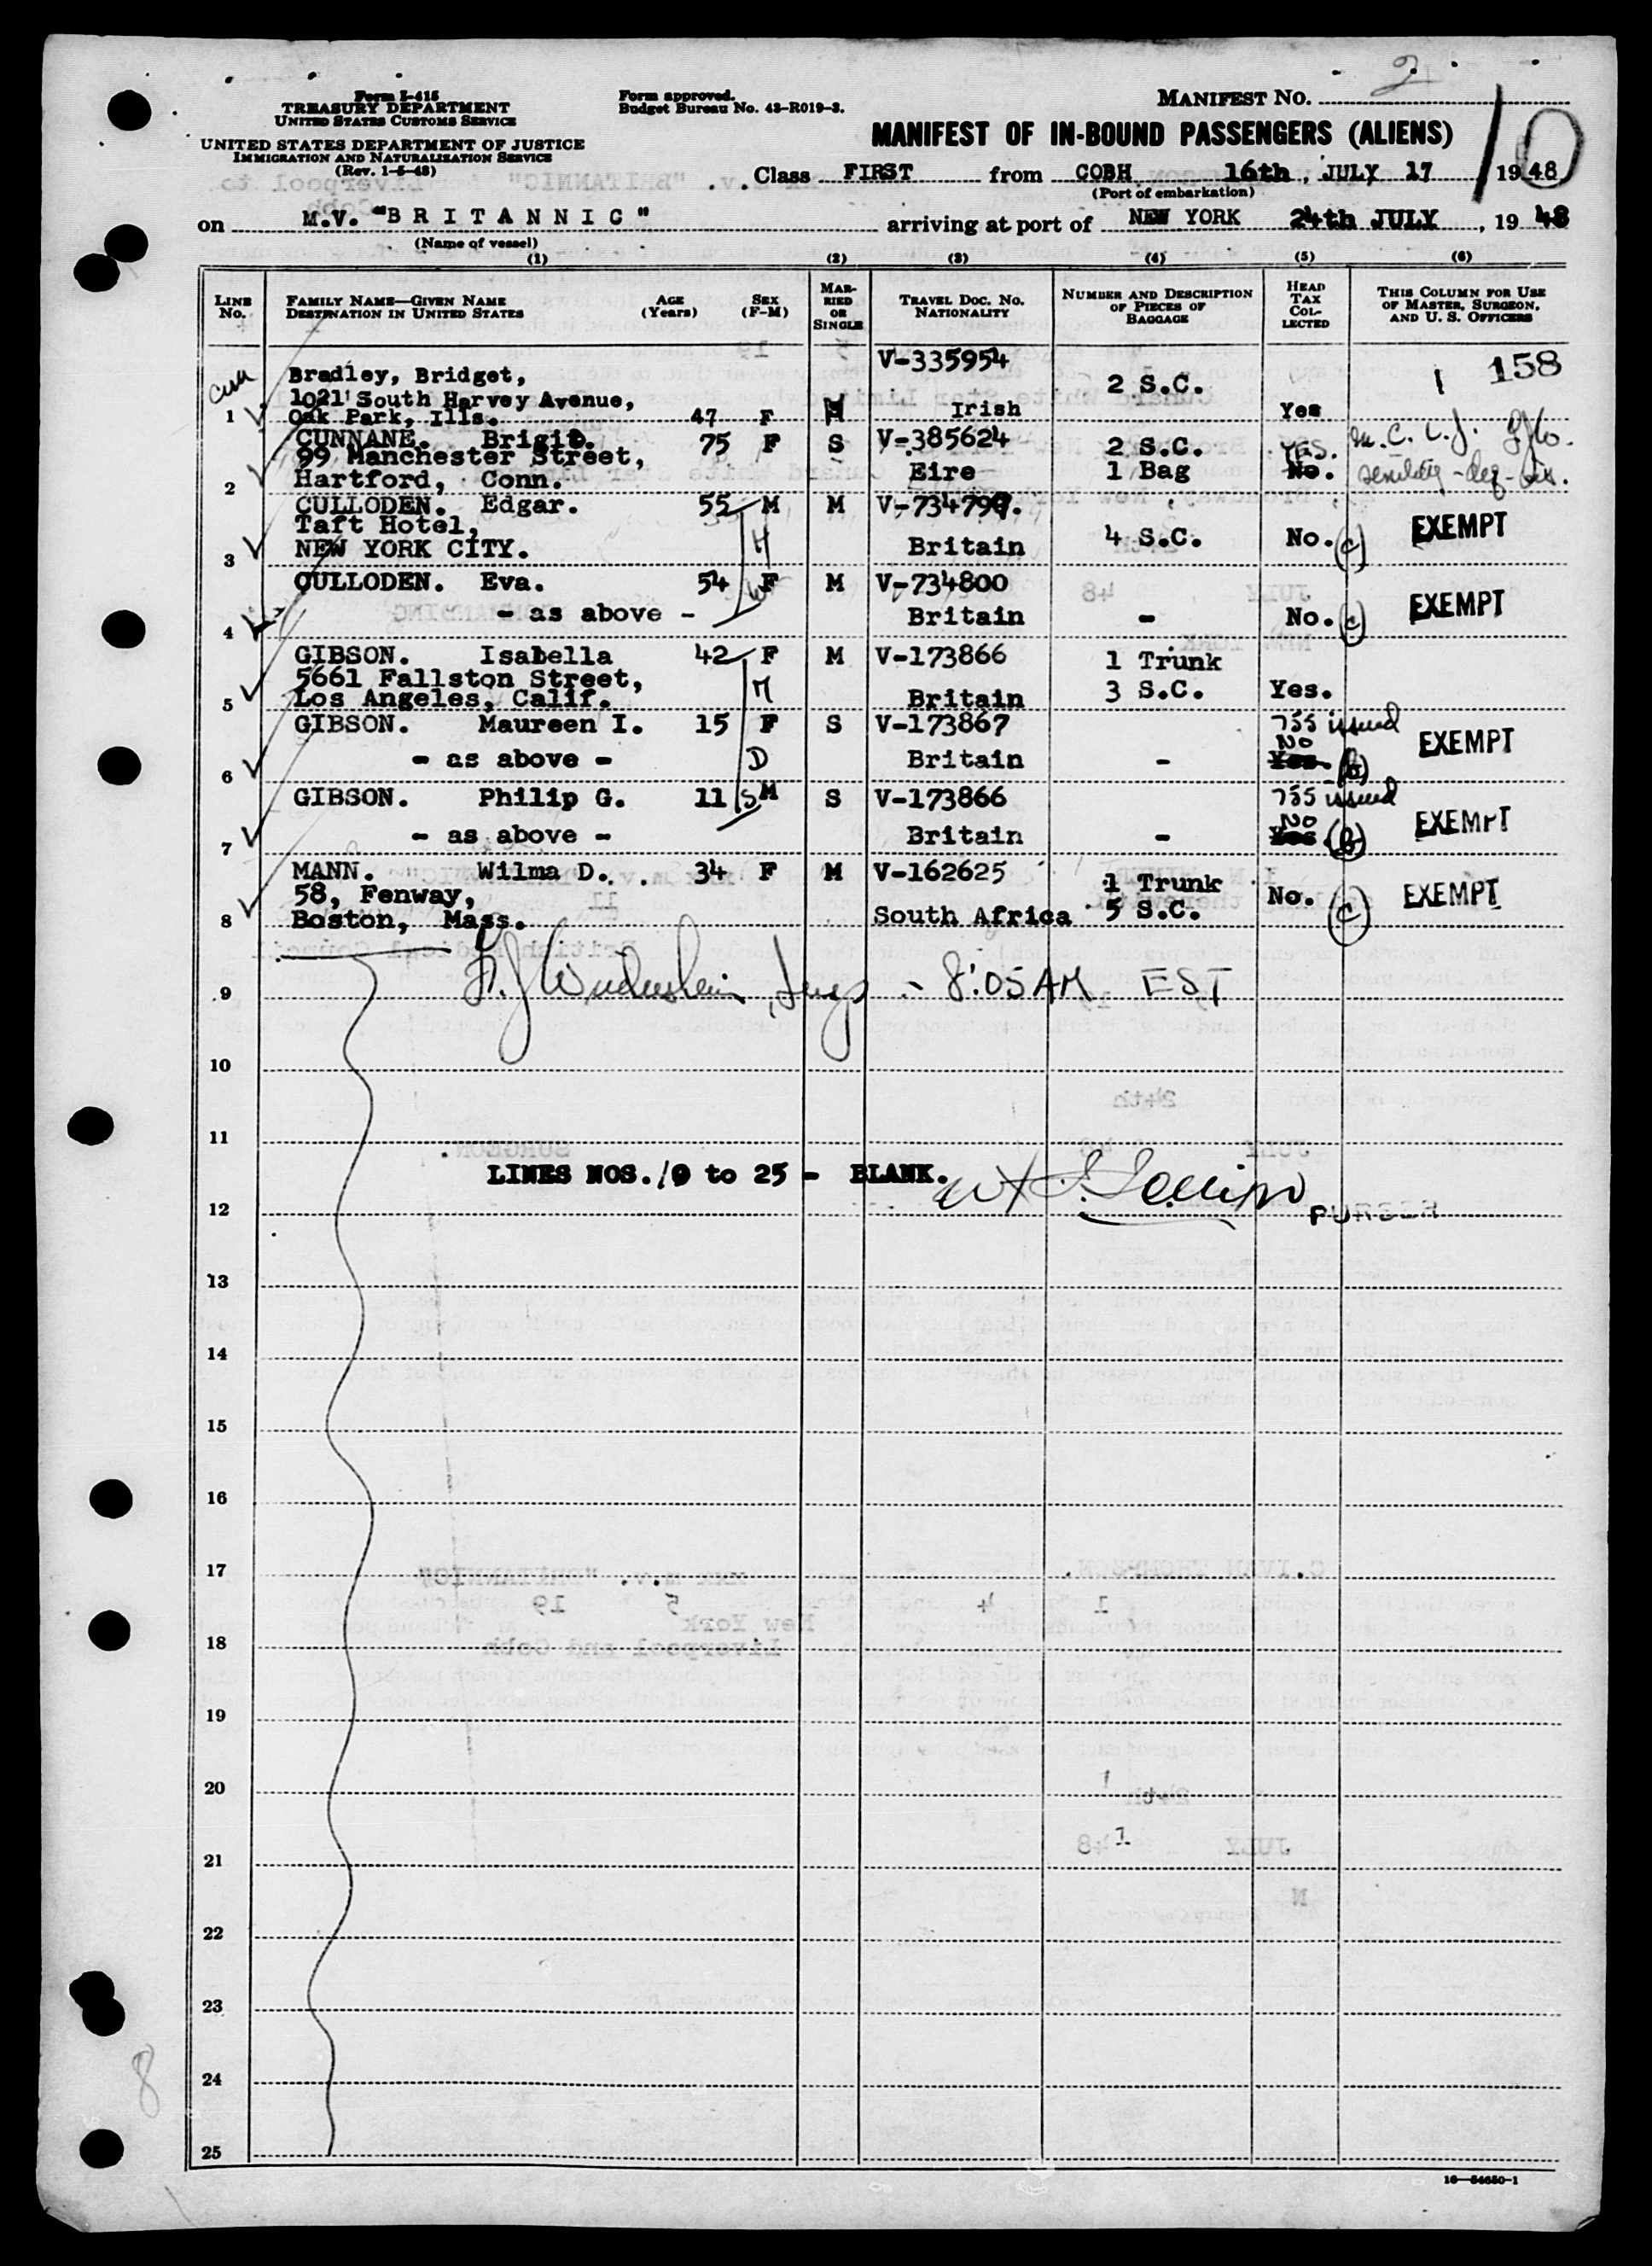 2
Form I-415
TREASURY DEPARTMENT
UNITED STATES CUSTOMS SERVICE
UNITED STATES DEPARTMENT OF JUSTICE
IMMIGRATION AND NATURALIZATION SERVICE
(Rev. 1-5-48)
Form approved.
Budget Bureau No. 43-R019-3.
MANIFEST NO.
10
MANIFEST OF IN-BOUND PASSENGERS (ALIENS)
Class FIRST from COBH 16th, JULY 17 1948
(Port of embarkation)
on M.V. "BRITANNIC" arriving at port of NEW YORK 24th JULY, 19 48
(Name of vessel)
(1) (2) (3) (4) (5) (6)
LINE No. FAMILY NAME—GIVEN NAME DESTINATION IN UNITED STATES AGE (Years) SEX (F-M) MARRIED OR SINGLE TRAVEL DOC. NO. NATIONALITY NUMBER AND DESCRIPTION OF PIECES OF BAGGAGE HEAD TAX COLLECTED THIS COLUMN FOR USE OF MASTER, SURGEON, AND U. S. OFFICERS
V-335954
Bradley, Bridget, 2 S.C. 1 158
1021 South Harvey Avenue,
1 Oak Park, Ills. 47 F Irish Yes
CUNNANE. Brigid. 75 F S V-385624 2 S.C. Yes.
99 Manchester Street,
2 Hartford, Conn. Eire 1 Bag No. senility
CULLODEN. Edgar. 55 M M V-734799.
Taft Hotel, H
3 NEW YORK CITY. Britain 4 S.C. No. (c) EXEMPT
CULLODEN. Eva. 54 F M V-734800
W
4 - as above - Britain - No. (c) EXEMPT
GIBSON. Isabella 42 F M V-173866 1 Trunk
5661 Fallston Street, M
5 Los Angeles, Calif. Britain 3 S.C. Yes.
GIBSON. Maureen I. 15 F S V-173867 755 issued
No EXEMPT
6 - as above - D Britain - Yes (b)
GIBSON. Philip G. 11 S M S V-173866 755 issued
No EXEMPT
7 - as above - Britain - Yes (b)
MANN. Wilma D. 34 F M V-162625 1 Trunk No. (c) EXEMPT
58, Fenway,
8 Boston, Mass. South Africa 5 S.C.
9 8:05 AM EST
10
11
LINES NOS. 9 to 25 - BLANK.
12 PURSER
13
14
15
16
17
18
19
20
21
22
23
24
8
25
16—54650-1